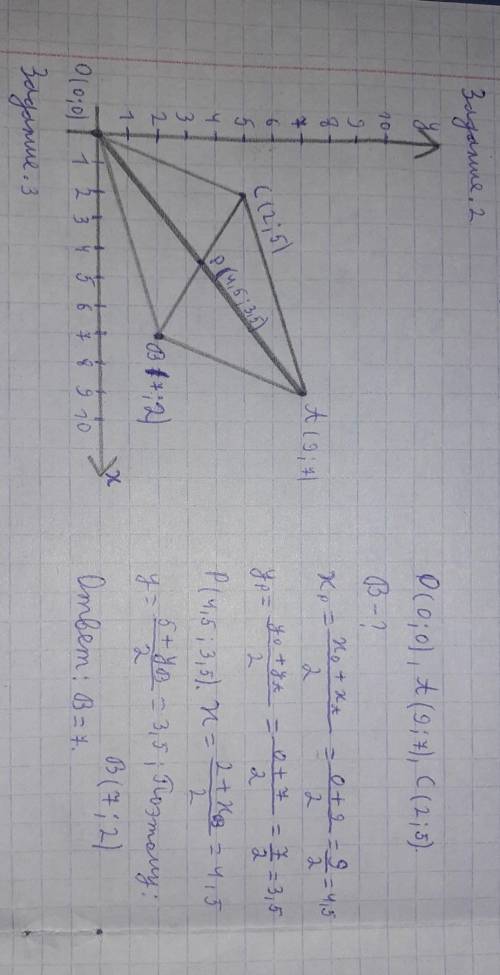 Задание. 2
y
10
9
8
7
6
5
4
3
2
1
O(0;0)
1 2 3 4 5 6 7 8 9 10
x
C(2;5)
P(4,5;3,5)
A(9;7)
B(7;2)
O(0;0), A(9;7), C(2;5).
B-?
xp = xo + xA / 2 = 0+9 / 2 = 9/2 = 4,5
yp = yo + yA / 2 = 0+7 / 2 = 7/2 = 3,5
P(4,5;3,5). x = 2+xB / 2 = 4,5
y = 5+yB / 2 = 3,5; Поэтому:
B(7;2)
Ответ: B=7.
Задание. 3